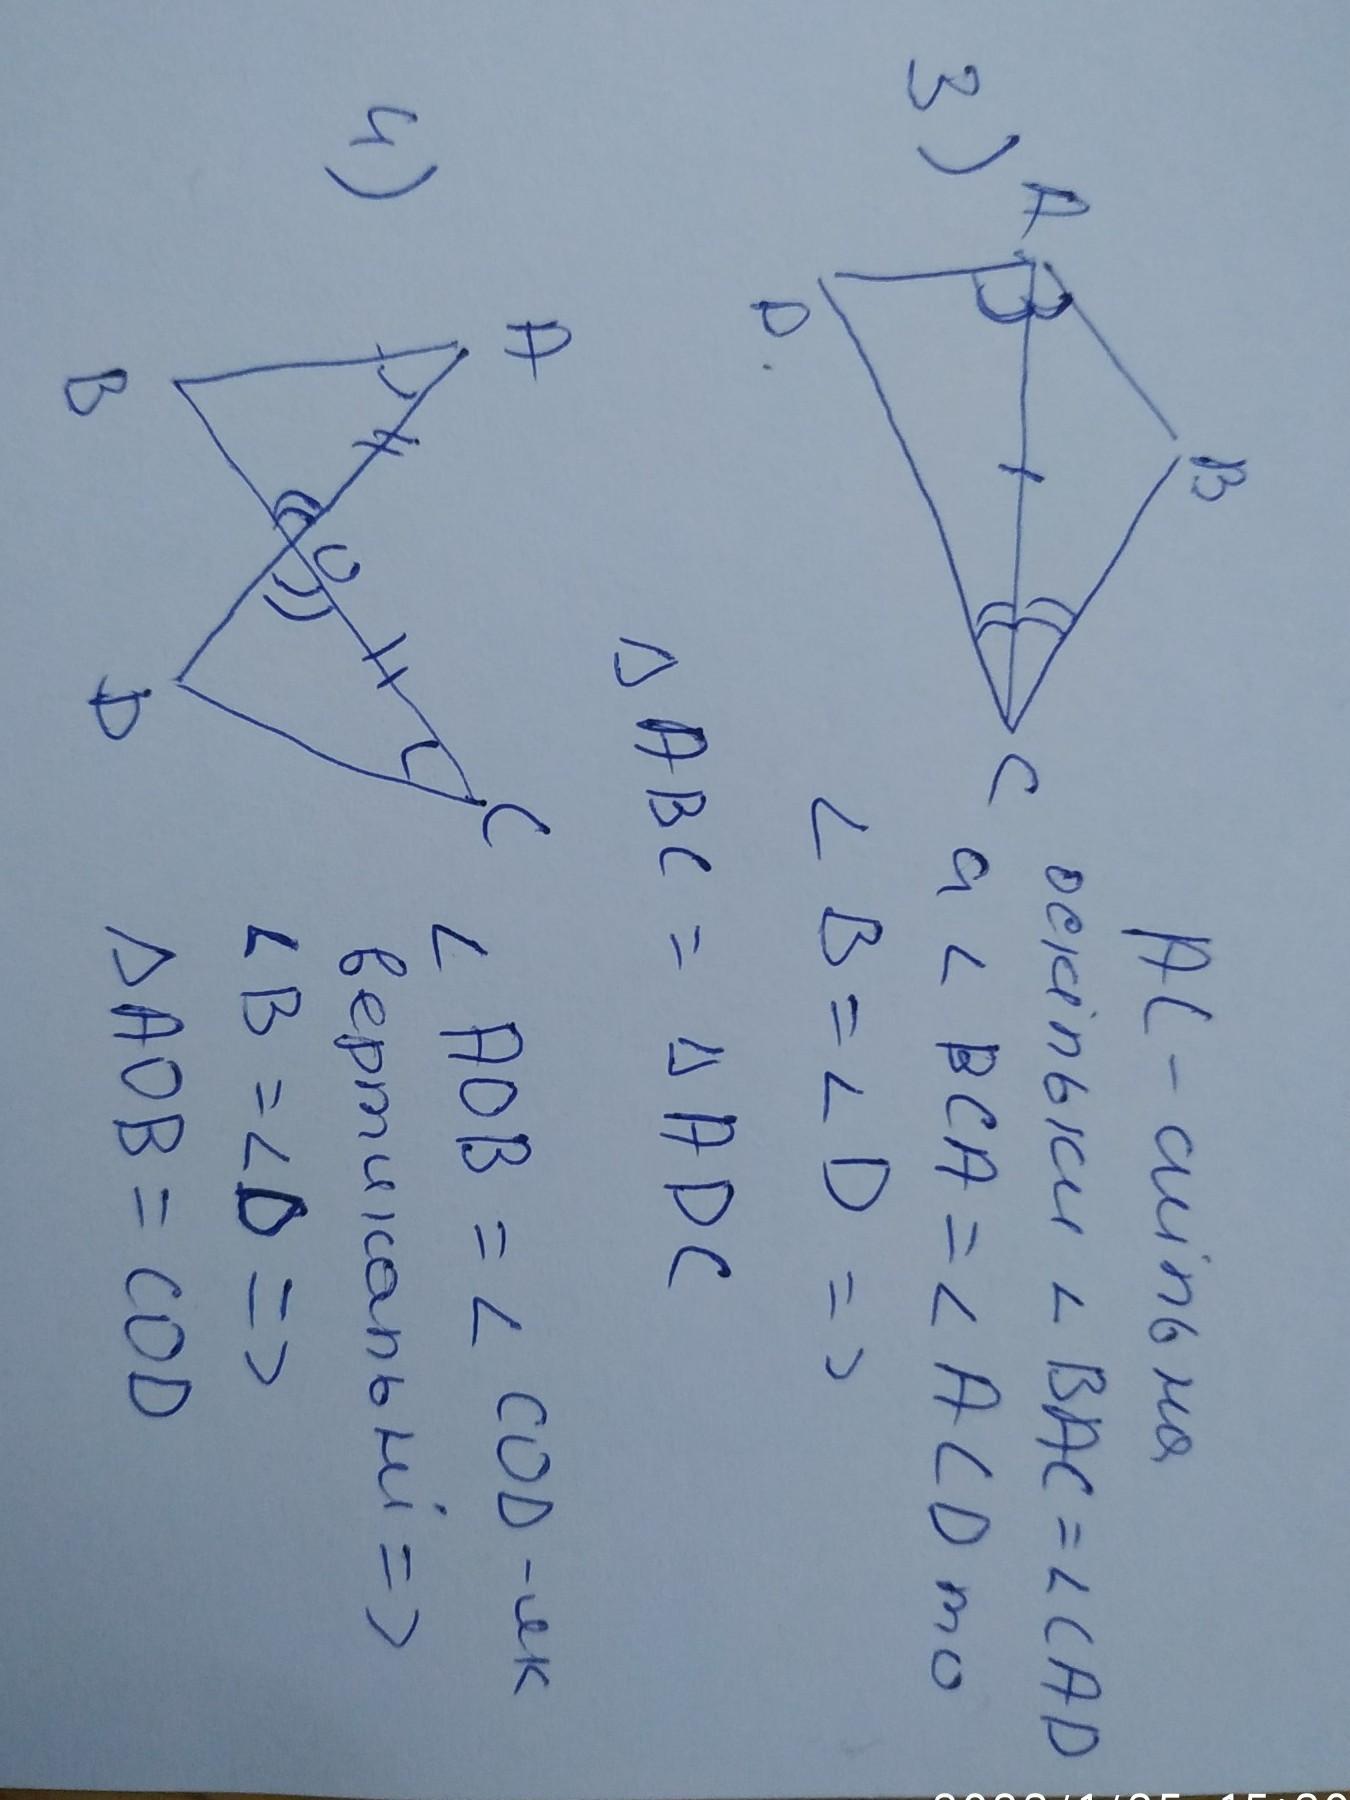 3)
A
B
D
C
AC - спільна
оскільки ∠ BAC = ∠CAD
а ∠ BCA = ∠ ACD то
∠ B = ∠ D =>
Δ ABC = Δ ADC
4)
A
B
O
C
D
∠ AOB = ∠ COD - як
вертикальні =>
∠B = ∠D =>
Δ AOB = COD